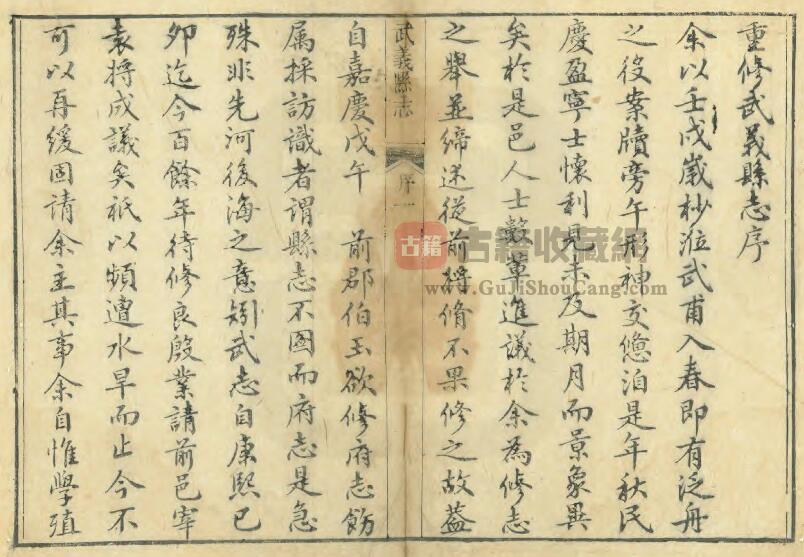 重修武義縣志序
余以壬戌歲杪涖武甫入春即有泛舟
之役案牘旁午形神交憊洎是年秋民
慶盈寧士懷利見未及期月而景象異
矣於是邑人士數輩進議於余為修志
之舉並締述從前將脩不果修之故蓋
武義縣志
序一
自嘉慶戊午 前郡伯玉欲修府志飭
属採訪識者謂縣志不圖而府志是急
殊非先河後海之意矧武志自康熙已
夘迄今百餘年待修良殷業請前邑宰
袁將成議矣祇以頻遭水旱而止今不
可以再緩固請余主其事余自惟學殖
古籍
古籍收藏網
www.GuJiShouCang.com